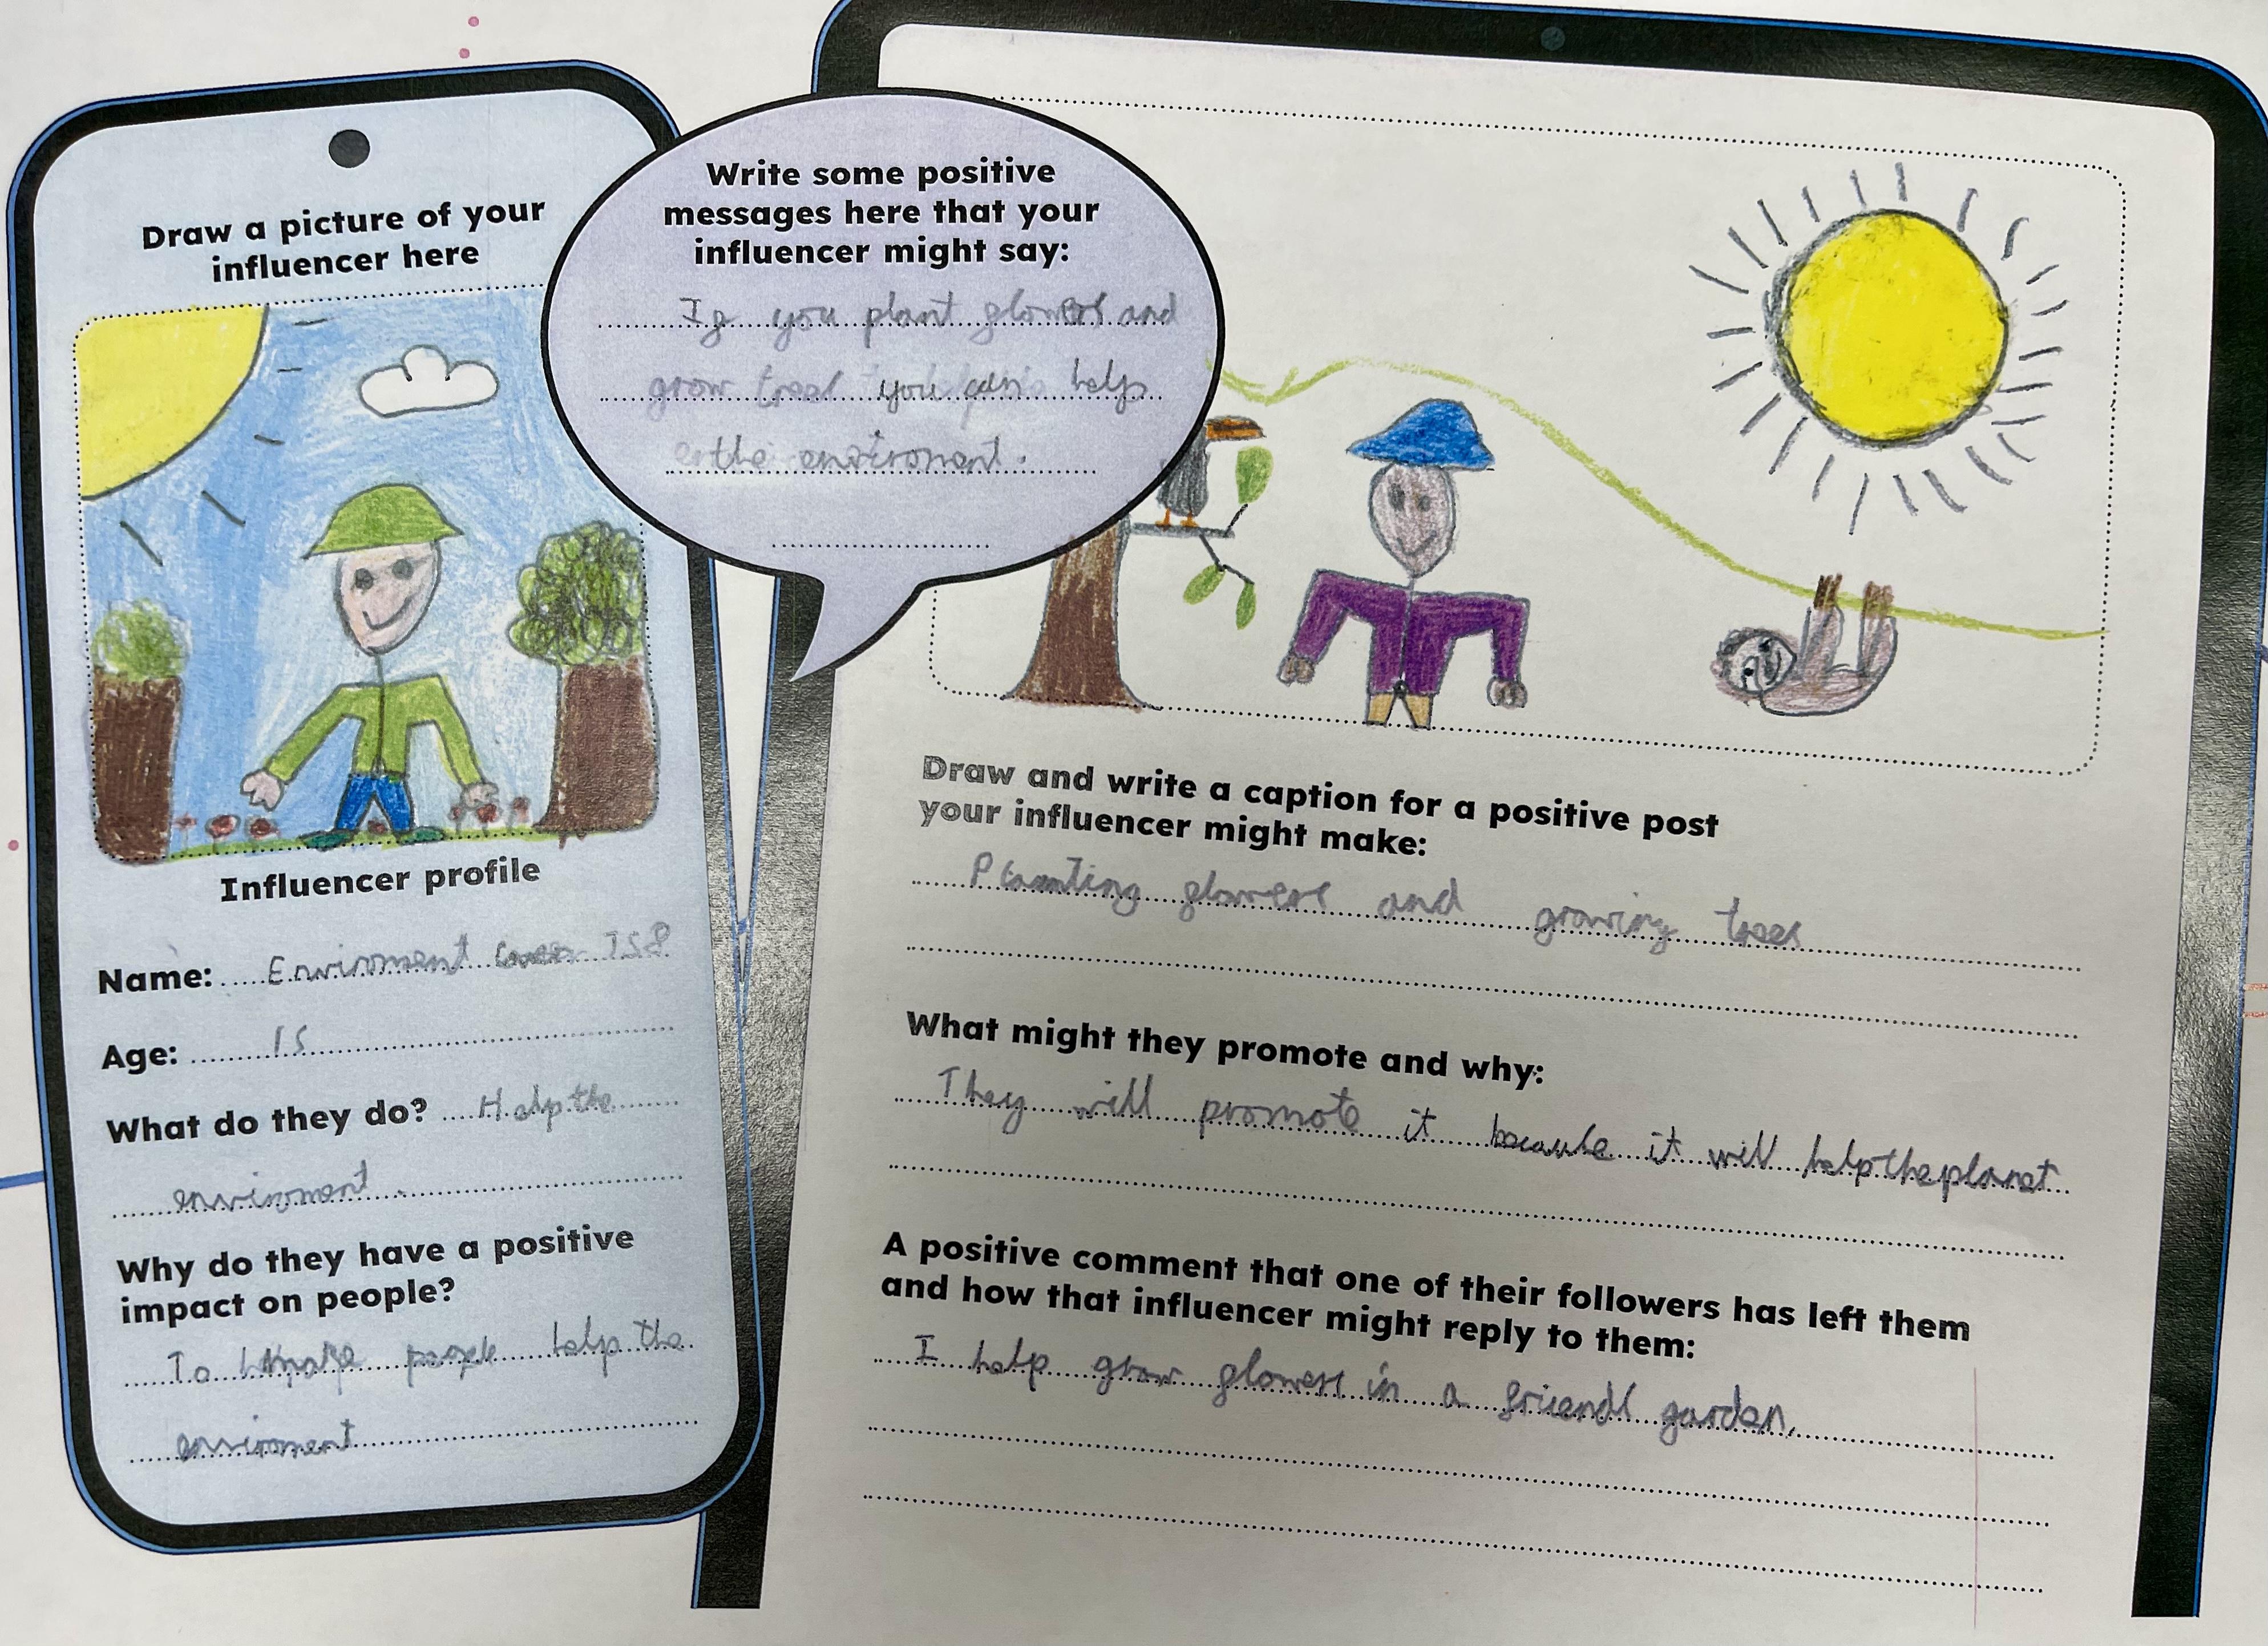 Draw a picture of your
influencer here
Influencer profile
Name: Enviroment 758
Age: 15
What do they do? Help the
enviroment.
Why do they have a positive
impact on people?
To people help the
enviroment
Write some positive
messages here that your
influencer might say:
If you plant flowers and
grow trees you can help
the enviroment.
Draw and write a caption for a positive post
your influencer might make:
Planting flowers and growing trees
What might they promote and why:
They will promote it because it will help the planet
A positive comment that one of their followers has left them
and how that influencer might reply to them:
I help grow flowers in a friends garden.